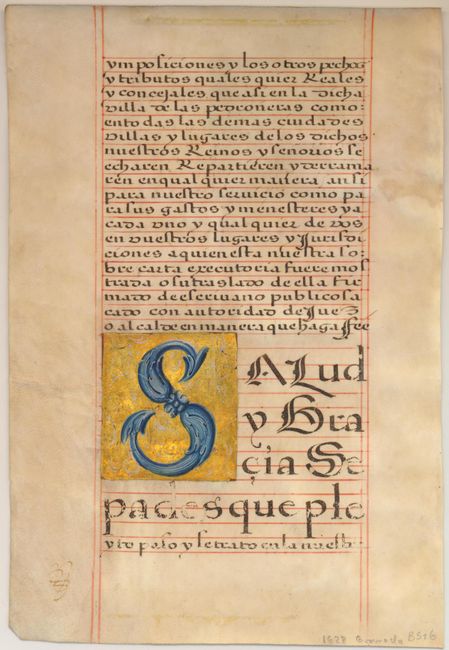 ymposiciones y los otros pechos
y tributos quales quier Reales
y concejales que asi en la dicha
villa de las pedroneras como
en todas las demas ciudades
villas y lugares de los dichos
nuestros Reinos y señorios se
echaren Repartieren y derrama
ren en qual quier manera ansi
para nuestro servicio como pa
ra sus gastos y menesteres y a
cada vno y qual quier de vos
en vuestros lugares y Jurisdi
ciones a quien esta nuestra so
bre carta executoria fuere mos
trada o su traslado de ella fir
mado de escriuano publico sa
cado con autoridad de Juez
o alcalde en manera que haga ffee
SALud
y Gra
çia Se
pades que ple
yto paso y se trato en la nuestra
1628 Granada 8516